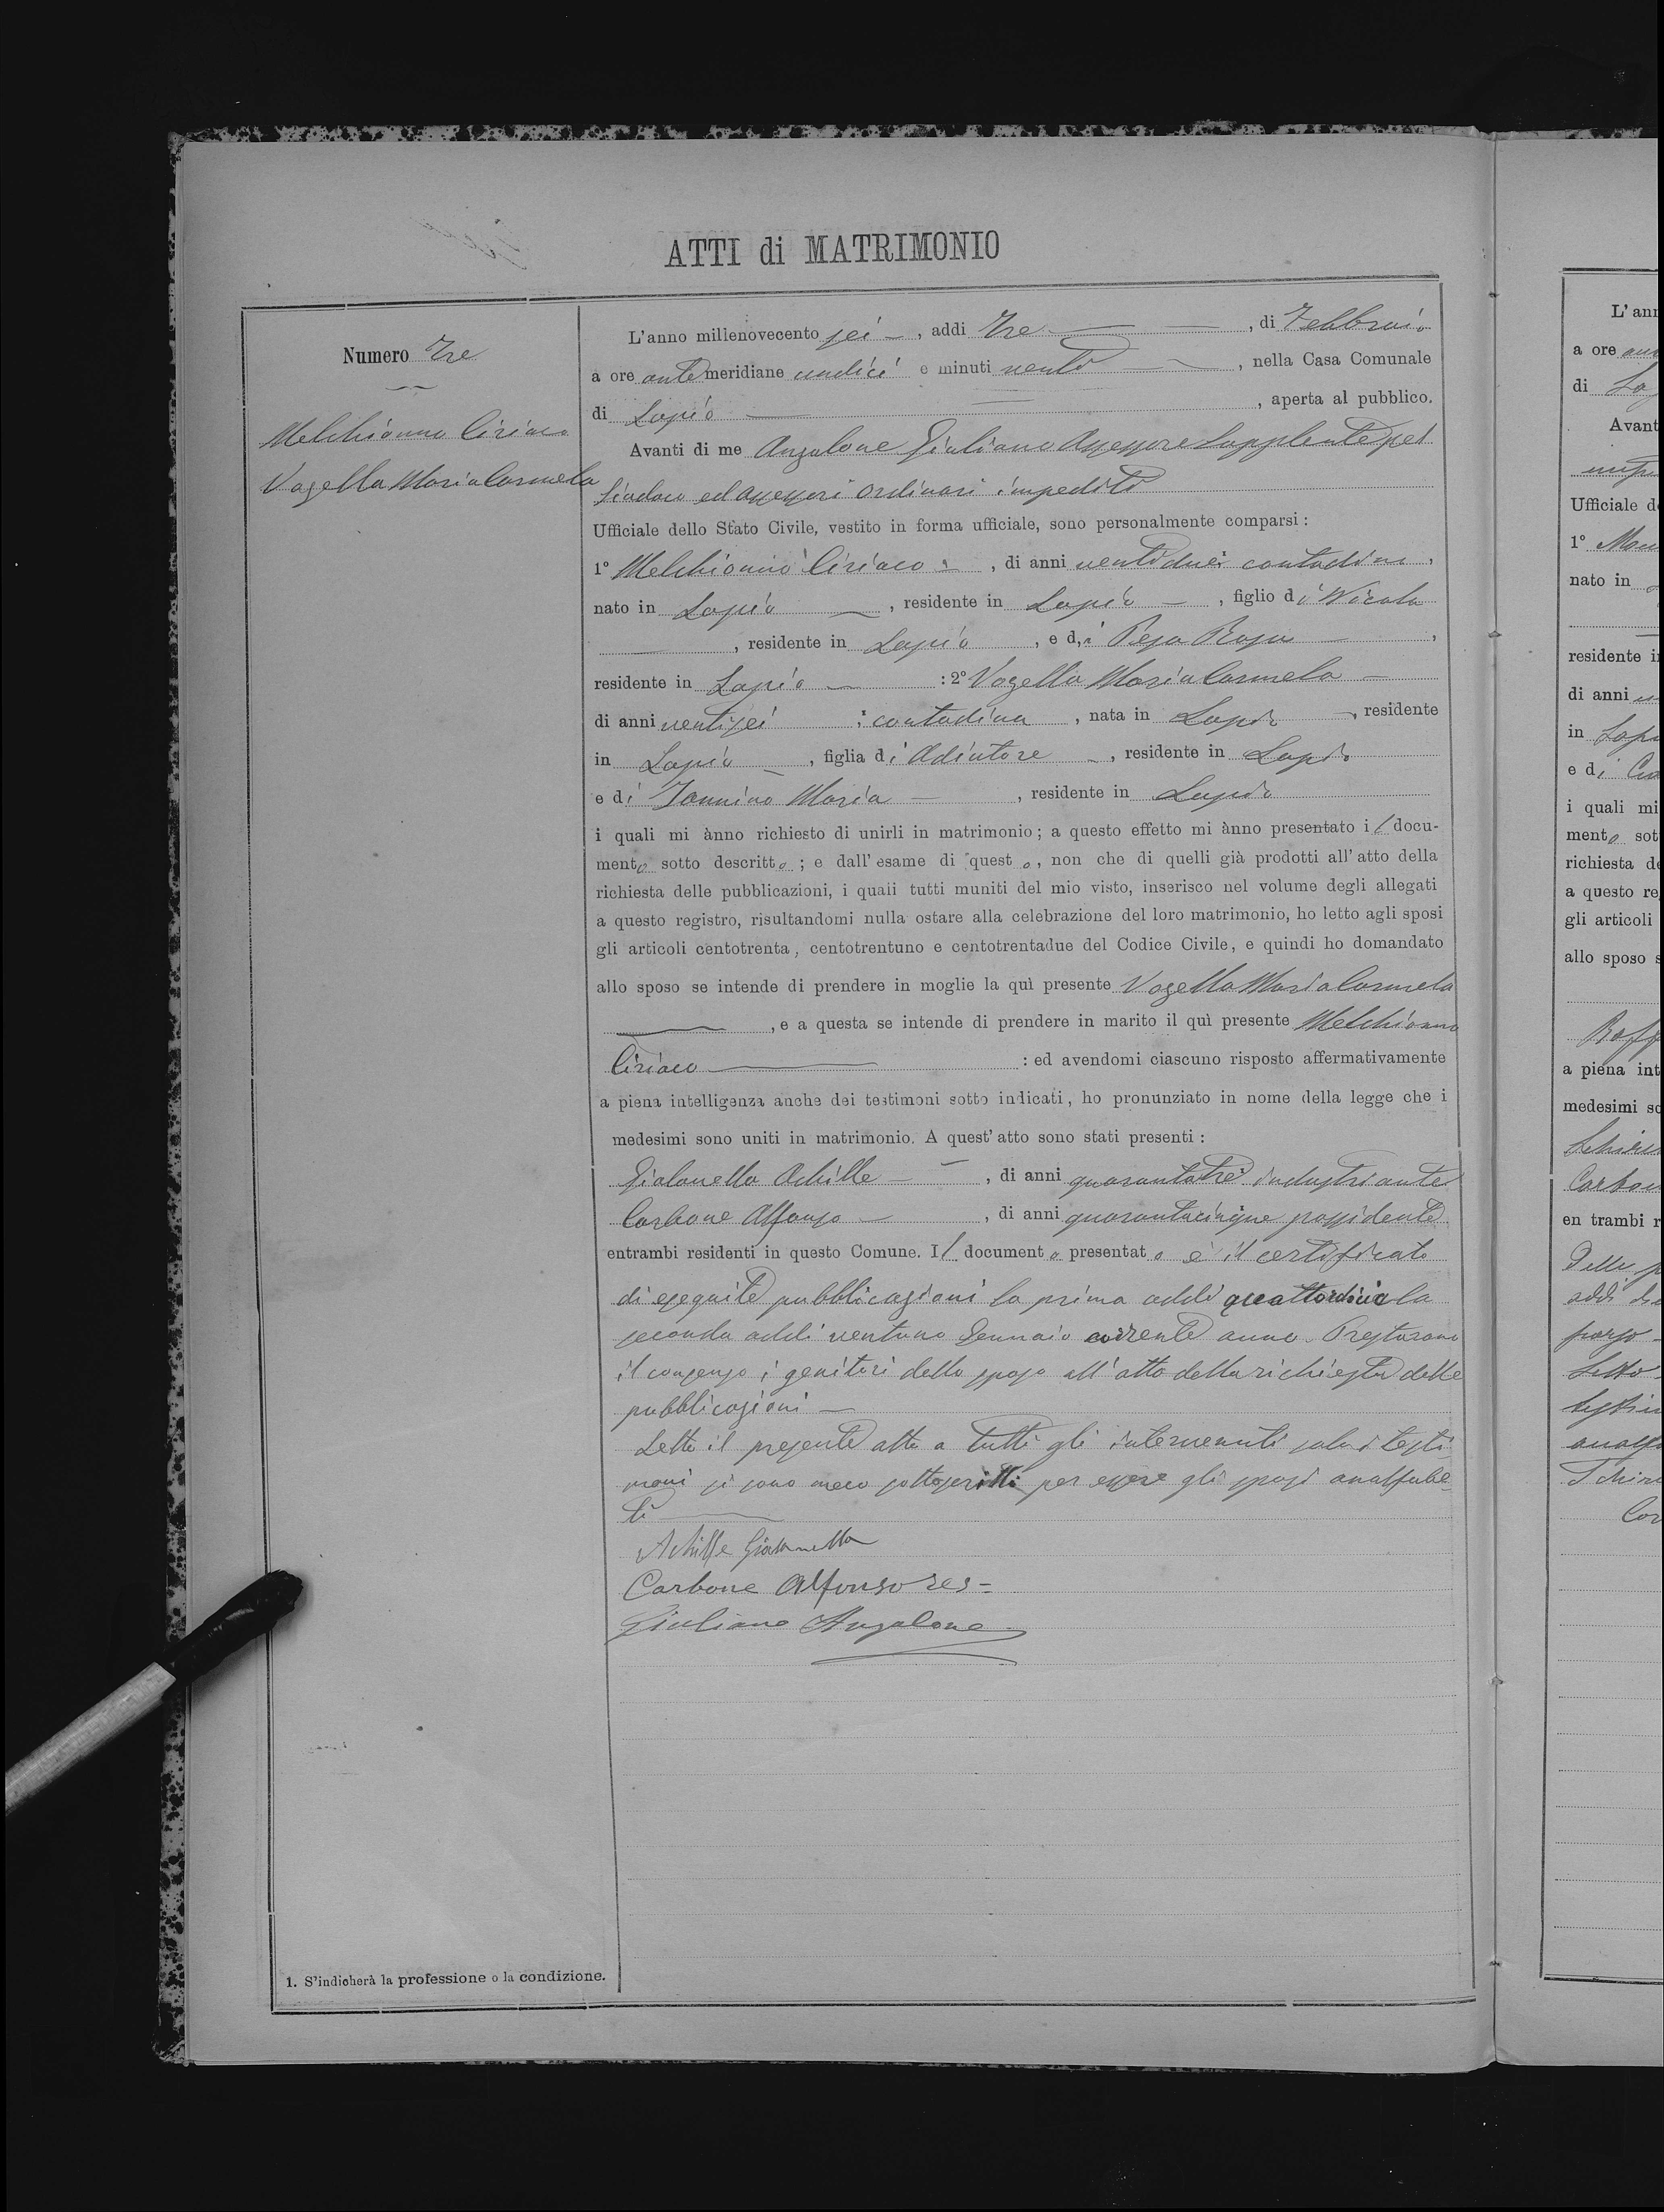 ATTI di MATRIMONIO
Numero Tre
Melchionno Ciriaco
Vozella Maria Carmela
L'anno millenovecento sei, addi Tre, di Febbraio
a ore antemeridiane undici e minuti venti, nella Casa Comunale
di Lapio, aperta al pubblico.
Avanti di me Anzalone Giuliano Assessore Supplente pel
Sindaco ed assessori ordinari impediti
Ufficiale dello Stato Civile, vestito in forma ufficiale, sono personalmente comparsi:
1° Melchionno Ciriaco, di anni ventidue: contadino,
nato in Lapio, residente in Lapio, figlio di Nicola
, residente in Lapio, e di Pesa Rosa,
residente in Lapio : 2° Vozella Maria Carmela
di anni ventisei : contadina, nata in Lapio, residente
in Lapio, figlia di Adiutore, residente in Lapio
e di Iannino Maria, residente in Lapio
i quali mi ànno richiesto di unirli in matrimonio; a questo effetto mi ànno presentato il docu-
mento sotto descritto; e dall'esame di questo, non che di quelli già prodotti all'atto della
richiesta delle pubblicazioni, i quali tutti muniti del mio visto, inserisco nel volume degli allegati
a questo registro, risultandomi nulla ostare alla celebrazione del loro matrimonio, ho letto agli sposi
gli articoli centotrenta, centotrentuno e centotrentadue del Codice Civile, e quindi ho domandato
allo sposo se intende di prendere in moglie la quì presente Vozella Maria Carmela
, e a questa se intende di prendere in marito il quì presente Melchionno
Ciriaco : ed avendomi ciascuno risposto affermativamente
a piena intelligenza anche dei testimoni sotto indicati, ho pronunziato in nome della legge che i
medesimi sono uniti in matrimonio. A quest'atto sono stati presenti:
Gialanella Achille, di anni quarantatre industriante
Carbone Alfonso, di anni quarantacinque possidente
entrambi residenti in questo Comune. Il documento presentato è il certificato
di eseguite pubblicazioni la prima addi quattordici la
seconda addi ventuno Gennaio corrente anno. Prestarono
il consenso i genitori dello sposo all'atto della richiesta delle
pubblicazioni
Letto il presente atto a tutti gli intervenuti solo i testi
moni si sono meco sottoscritti per essere gli sposi analfabe-
ti
Achille Gialanella
Carbone Alfonso
Giuliano Anzalone
1. S'indicherà la professione o la condizione.
L'an
a ore
di La
Avant
Ufficiale d
1°
nato in
residente i
di anni
in Lapi
e di
i quali mi
mento sot
richiesta de
a questo re
gli articoli
allo sposo s
Raff
a piena int
medesimi so
Carbon
en trambi r
addi